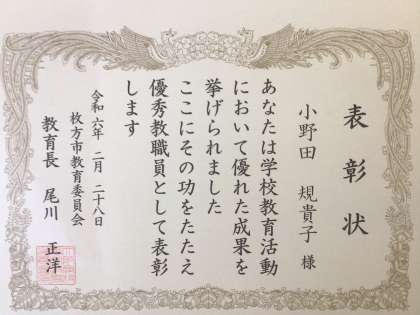 表彰状
小野田 規貴子 様
あなたは学校教育活動
において優れた成果を
挙げられました
ここにその功をたたえ
優秀教職員として表彰
します
令和六年 二月 二十八日
枚方市教育委員会
教育長 尾川 正洋